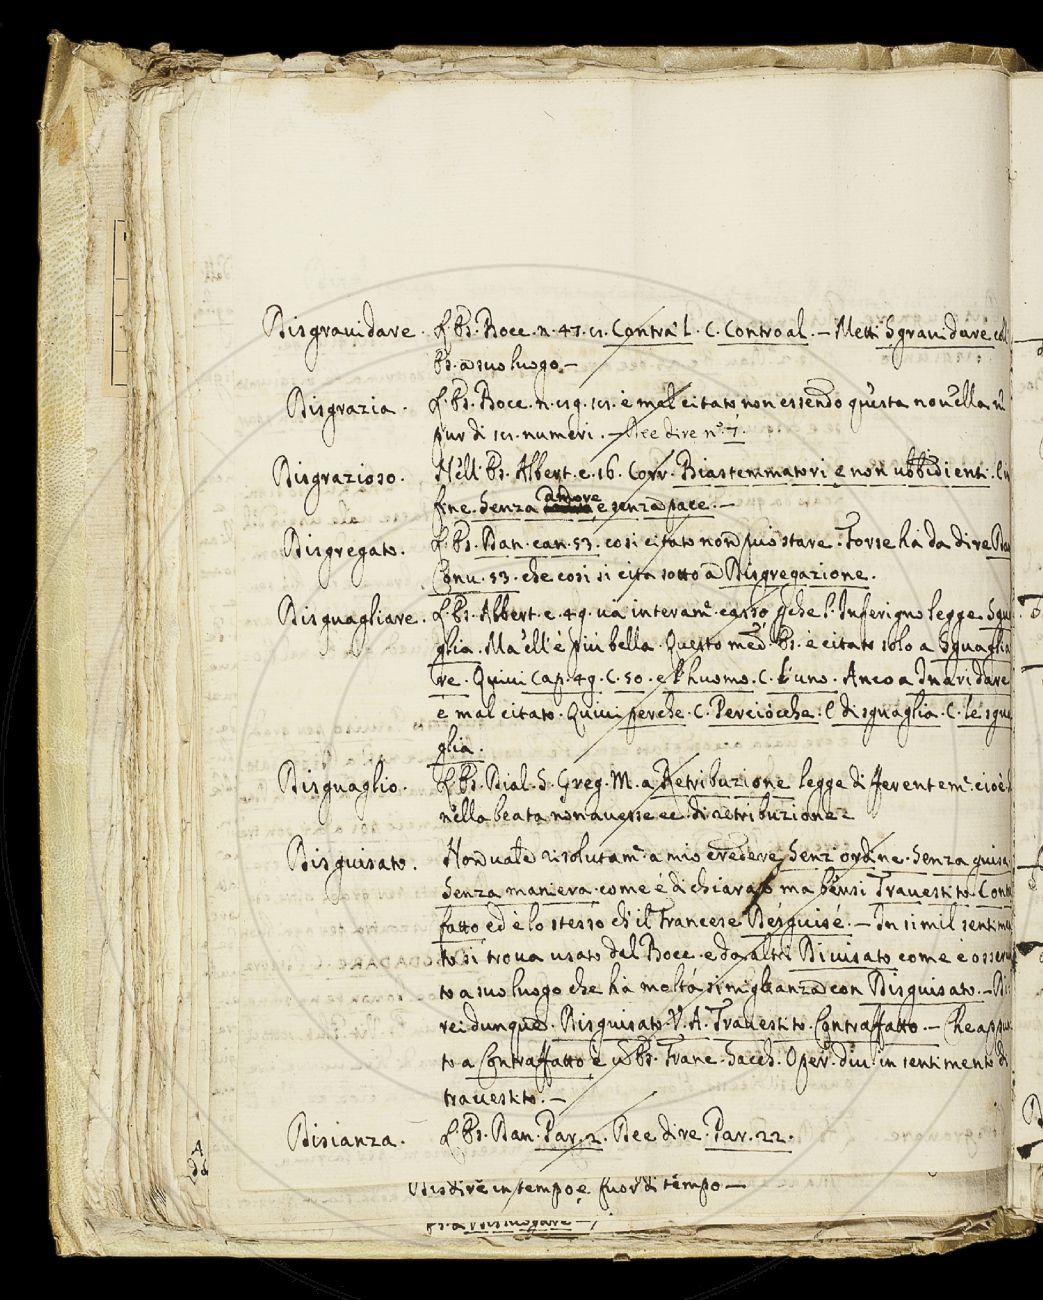 Disgrauidare. Es. Bocc. n. 47. Contra l. C. Contro al. – Metti Sgrauidare
Es. a suo luogo. –
Disgrazia. Es. Bocc. n. è mal citato non essendo questa nouella
pur di numeri. – Dee dire n.° 7.
Disgrazioso. Nell' Es. Albert. c. 16. Corr. Biastemmatori, e non ubbidienti.
fine. Senza amore e senza pace. –
Disgregato. Es. Dan. can. 53. così citato non può stare. Forse ha da dire
Conu. 53. che così si cita sotto a Disgregazione.
Disguagliare. Es. Albert. c. 49. ua interam. casso l'Inferigno legge Sgua
glia. Ma ell' è più bella. Questo med. Es. è citato solo a Sguaglia
re. Quiui Cap. 49. C. 50. e l'huomo. C. l'uno. Anco a Inaridare
è mal citato. Quiui perche. C. Perciocche. C disguaglia. C. le sgua
glia.
Disguaglio. Es. Dial. S. Greg. M. a Retribuzione legge differentem. cioè
nella beata non auesse ec. di retribuzione
Disguisato. Non uale risolutam. a mio credere, Senz' ordine. Senza guisa.
Senza maniera. come è dichiarato ma bensi Trauestito. Contra
fatto ed è lo stesso ch' il Francese Désguisé. – In simil sentimen
to si troua usato dal Bocc. e da altri Diuisato come è osserua
to a suo luogo che ha molta simiglianza con Disguisato. – Di
rei dunque. Disguisato. V. A. Trauestito. Contraffatto. – Che appun
to a Contraffatto è un Es. Franc. Sacch. Oper. diu. in sentimento di
trauestito. –
Disianza. Es. Dan. Par. 2. Dee dire. Par. 22.
Disdire in tempo e fuor di tempo –